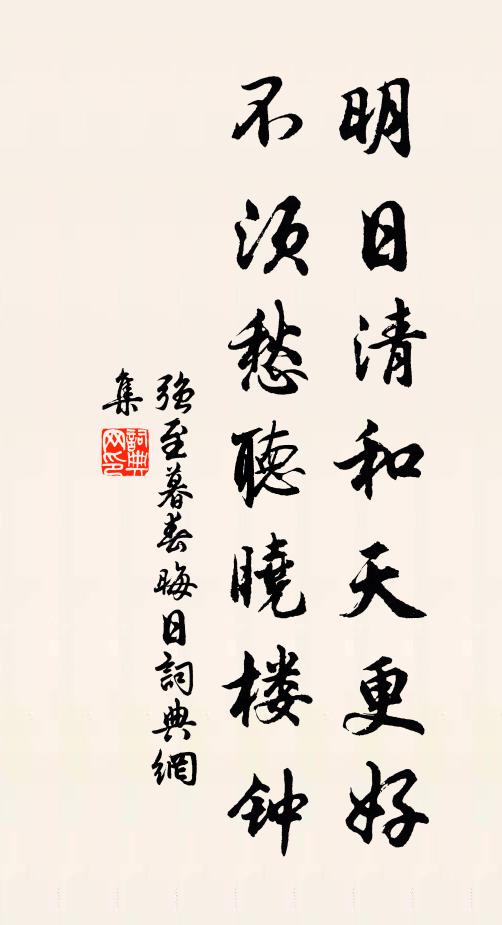 明日清和天更好
不须愁聽曉楼钟
强至暮春晦日詞典網
集
詞典網印